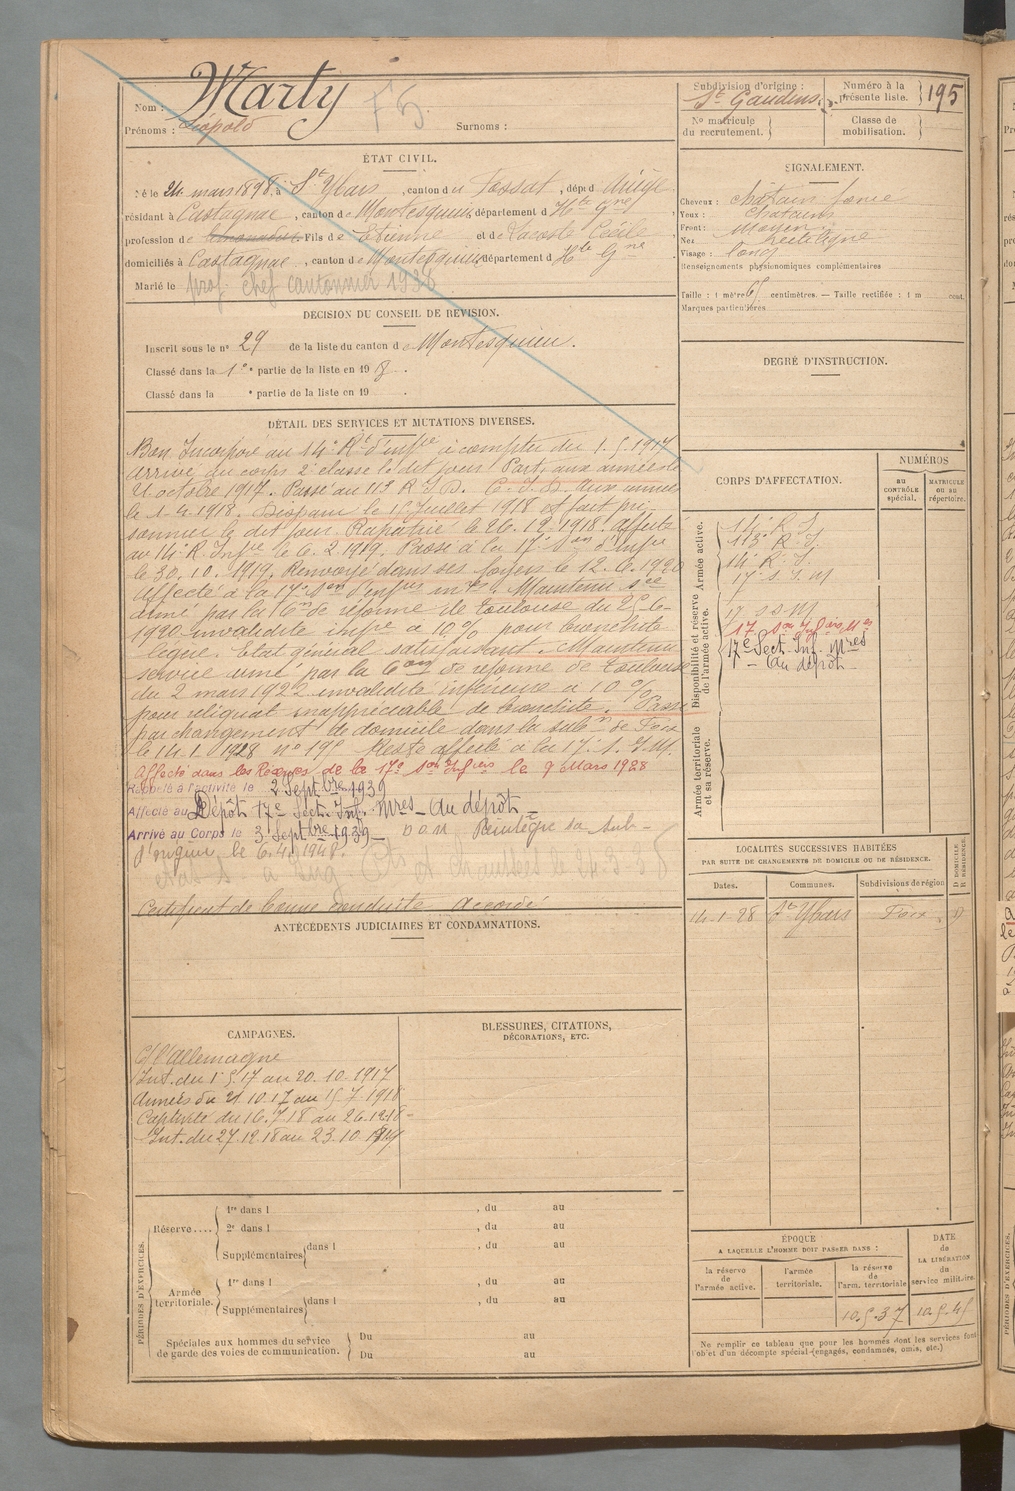 Nom : Marty
F 5.
Prénoms : Léopold
Surnoms :
Subdivision d'origine : St Gaudens
Numéro à la présente liste. 195
No matricule du recrutement.
Classe de mobilisation.
ÉTAT CIVIL.
Né le 24 mars 1898, à St Ybars, canton du Fossat, dépt d Ariège
résidant à Castagnac, canton de Montesquieu, département d Hte Gne
profession de Fils de Etienne et de Lacoste Cécile
domiciliés à Castagnac, canton de Montesquieu, département d Hte Gne
Marié le
prof. chef cantonnier 1938
DÉCISION DU CONSEIL DE RÉVISION.
Inscrit sous le no 29 de la liste du canton de Montesquieu.
Classé dans la 1e partie de la liste en 19 8.
Classé dans la e partie de la liste en 19 .
SIGNALEMENT.
Cheveux : chatain foncé
Yeux : chatains
Front : Moyen
Nez rectiligne
Visage : long
Renseignements physionomiques complémentaires
Taille : 1 mètre 65 centimètres. — Taille rectifiée : 1 m cent.
Marques particulières
DEGRÉ D'INSTRUCTION.
DÉTAIL DES SERVICES ET MUTATIONS DIVERSES.
Bon. Incorporé au 14e Rt d'infie à compter du 1.5.1917
arrivé au corps 2e classe le dit jour. Parti aux armées le
21 octobre 1917. Passé au 113 R I D. C. I. D. aux armées
le 1.4.1918. Disparu le 15 Juillet 1918 et fait pri
sonnier le dit jour. Rapatrié le 26.12.1918. affecté
au 14e R. Infie le 6.2.1919. Passé à la 17e Son d'Infie
le 30.10.1919. Renvoyé dans ses foyers le 12.6.1920
Affecté à la 17e Son d'infers mres. Maintenu sce
armé par la Con de réforme de Toulouse du 25-6-
1920 invalidité infre à 10% pour bronchite
légère. Etat général satisfaisant. Maintenu
service armé par la Con de réforme de Toulouse
du 2 mars 1922 invalidité inférieure à 10 %
pour reliquat inappréciable de bronchite. Passé
par changement de domicile dans la subon de Foix
le 14.1.1928 no 195 Reste affecté à la 17e S. I. M.
Affecté dans les Réserves de la 17e Son Infers le 9 Mars 1928
Rappelé à l'activité le 2 Septbre 1939
Affecté au Dépôt 17e Sect. Inf. Mres — du dépôt —
Arrivé au Corps le 3 Septbre 1939 — Réintègre sa sub-
d'origine le 6.4.1948.
24-3-58
Certificat de bonne conduite Accordé
CORPS D'AFFECTATION.
NUMÉROS
au CONTRÔLE spécial.
MATRICULE ou au répertoire.
Armée active.
14e R. I.
113e R. I.
14e R. I.
17e S. I. M
Disponibilité et réserve de l'armée active.
17 S I M
17 Son Infers Mres
17e Sect. Inf. Mres
— du dépôt —
Armée territoriale et sa réserve.
LOCALITÉS SUCCESSIVES HABITÉES
PAR SUITE DE CHANGEMENTS DE DOMICILE OU DE RÉSIDENCE.
D DOMICILE R RÉSIDENCE.
Dates. Communes. Subdivisions de région
14-1-28 St Ybars Foix D
ANTÉCÉDENTS JUDICIAIRES ET CONDAMNATIONS.
CAMPAGNES.
C/ l'Allemagne
Int. du 1.5.17 au 20.10.1917
Armées du 21.10.17 au 15.7.1918
Captivité du 16.7.18 au 26.12.18-
Int. du 27.12.18 au 23.10.1919
BLESSURES, CITATIONS,
DÉCORATIONS, ETC.
PÉRIODES D'EXERCICES.
Réserve....
1re dans l , du au
2e dans l , du au
Supplémentaires dans l , du au
Armée territoriale.
1re dans l , du au
Supplémentaires dans l , du au
Spéciales aux hommes du service de garde des voies de communication.
Du au
Du au
ÉPOQUE
A LAQUELLE L'HOMME DOIT PASSER DANS :
la réserve de l'armée active.
l'armée territoriale.
la réserve de l'arm. territoriale
DATE de LA LIBÉRATION du service militaire.
10.5.37 10.5.45
Ne remplir ce tableau que pour les hommes dont les services font
l'objet d'un décompte spécial (engagés, condamnés, omis, etc.)